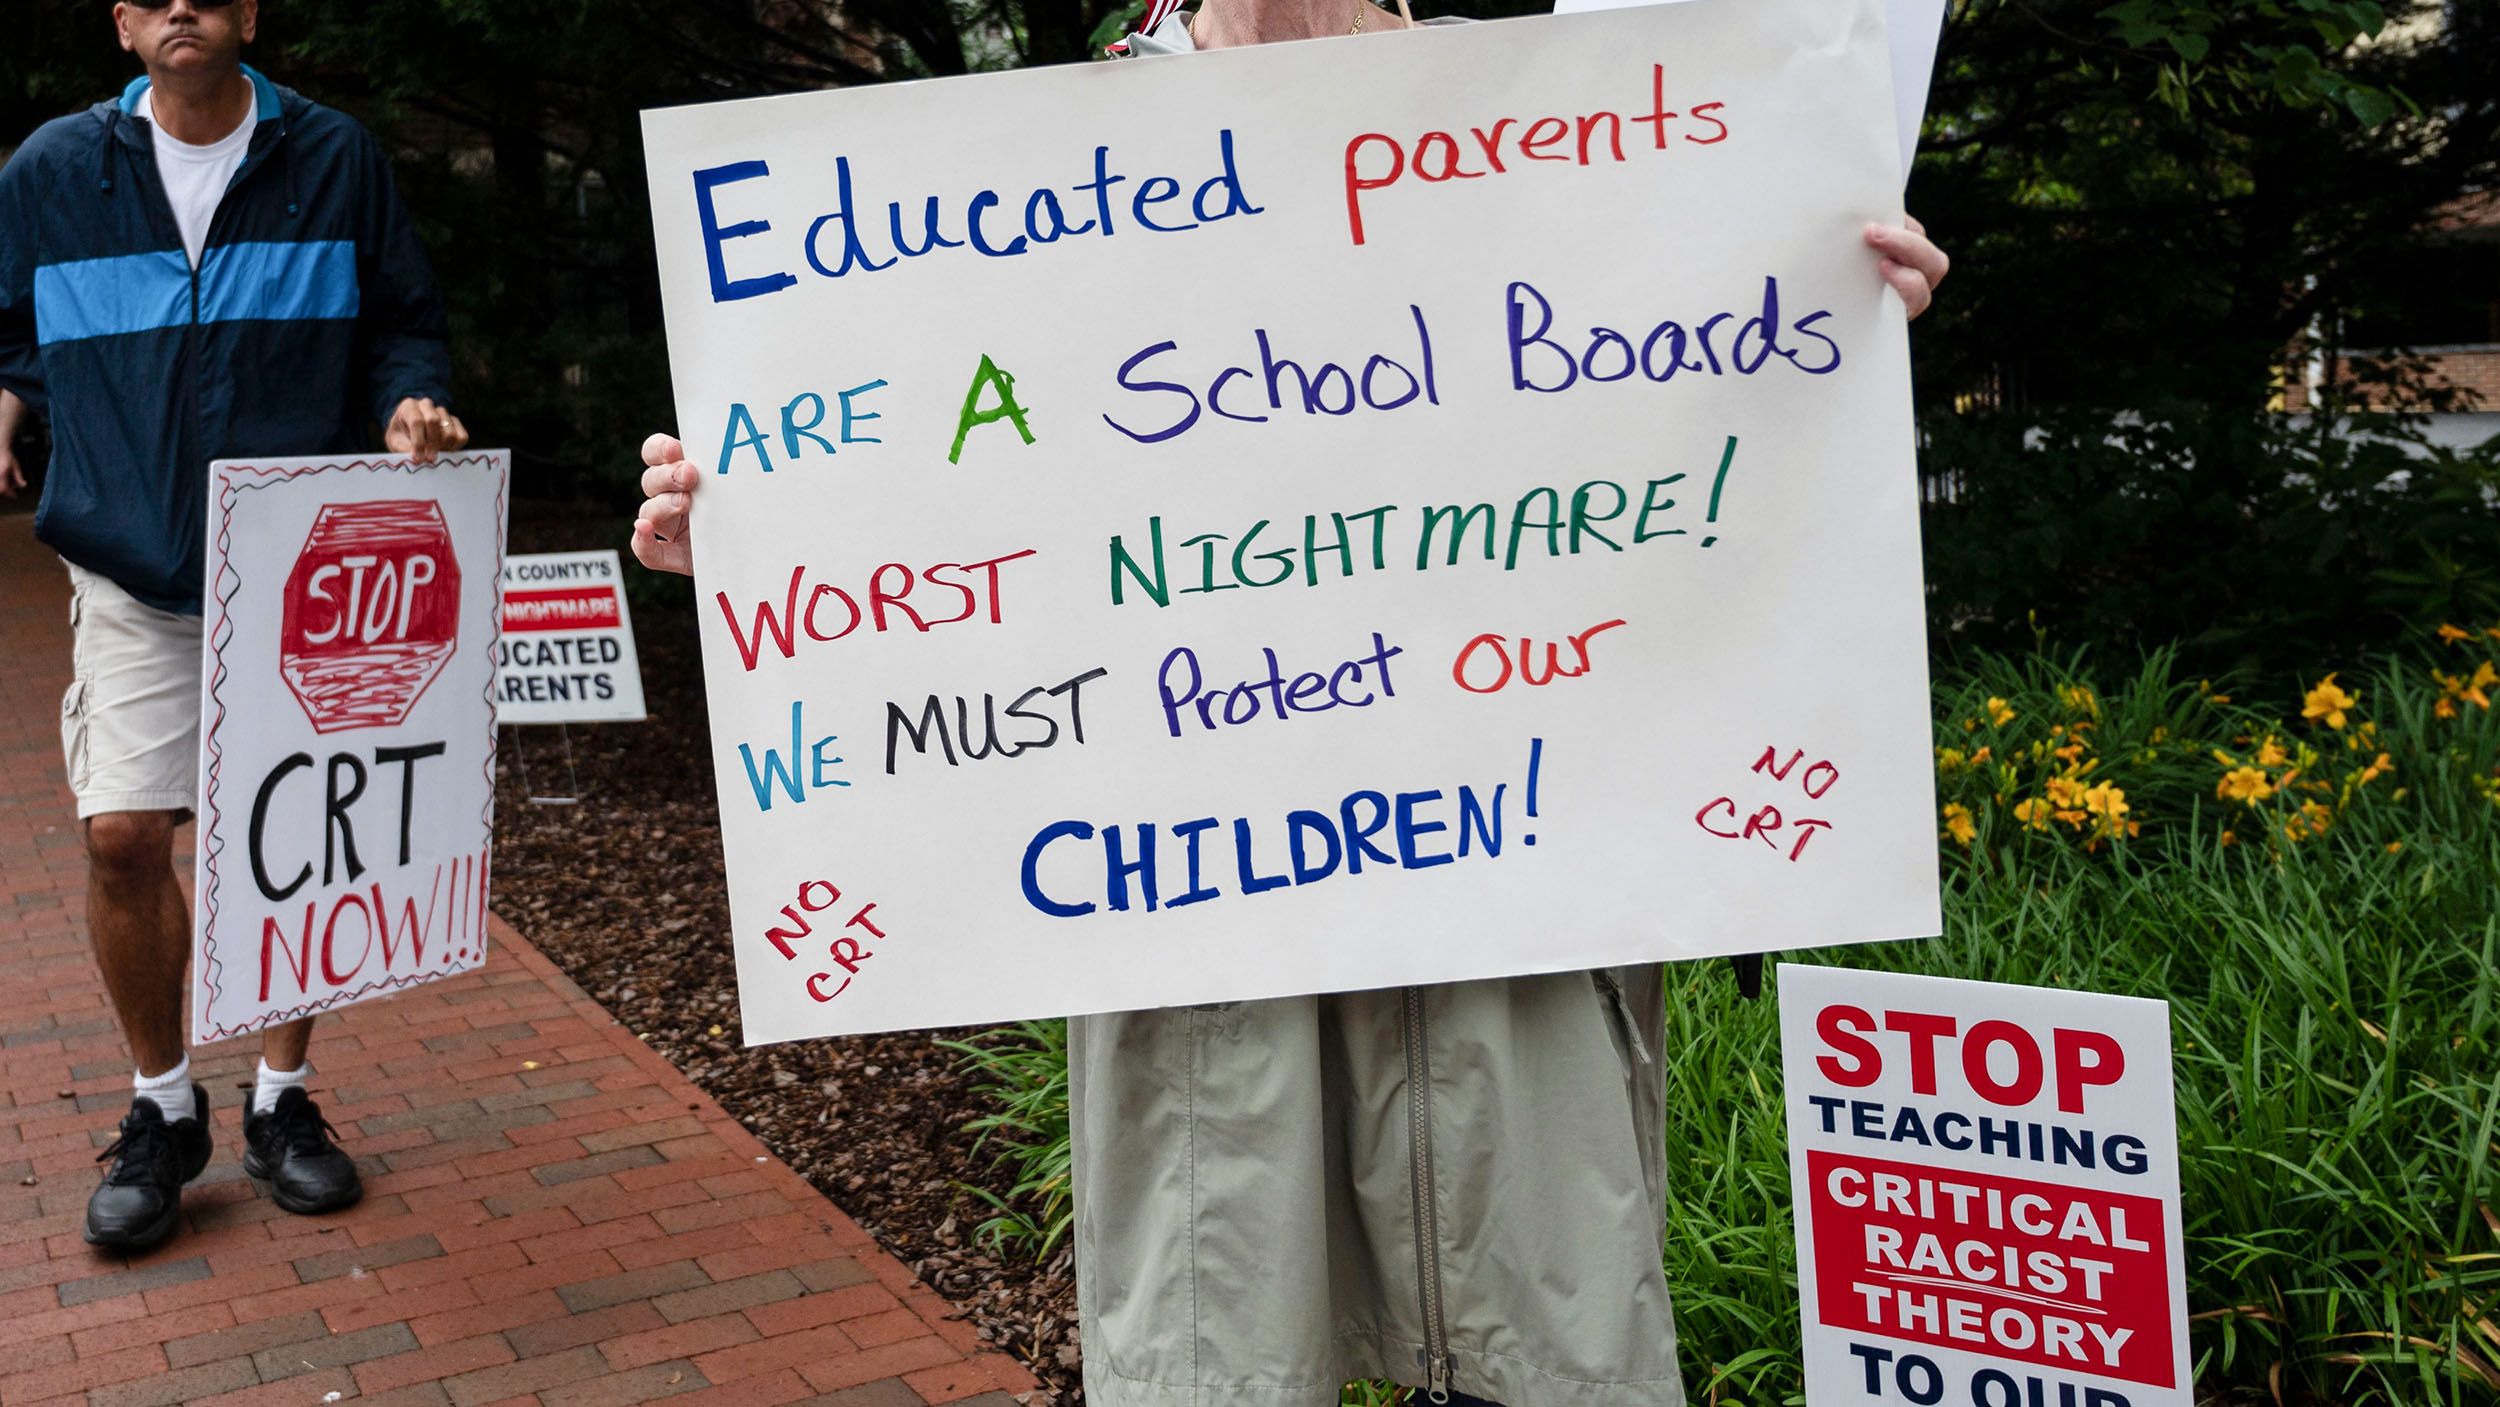 Educated parents
ARE A School Boards
WORST NIGHTMARE!
WE MUST Protect our
CHILDREN!
NO
CRT
NO
CRT
STOP
CRT
NOW!!!
COUNTY'S
NIGHTMARE
STOP
TEACHING
CRITICAL
RACIST
THEORY
TO OUR